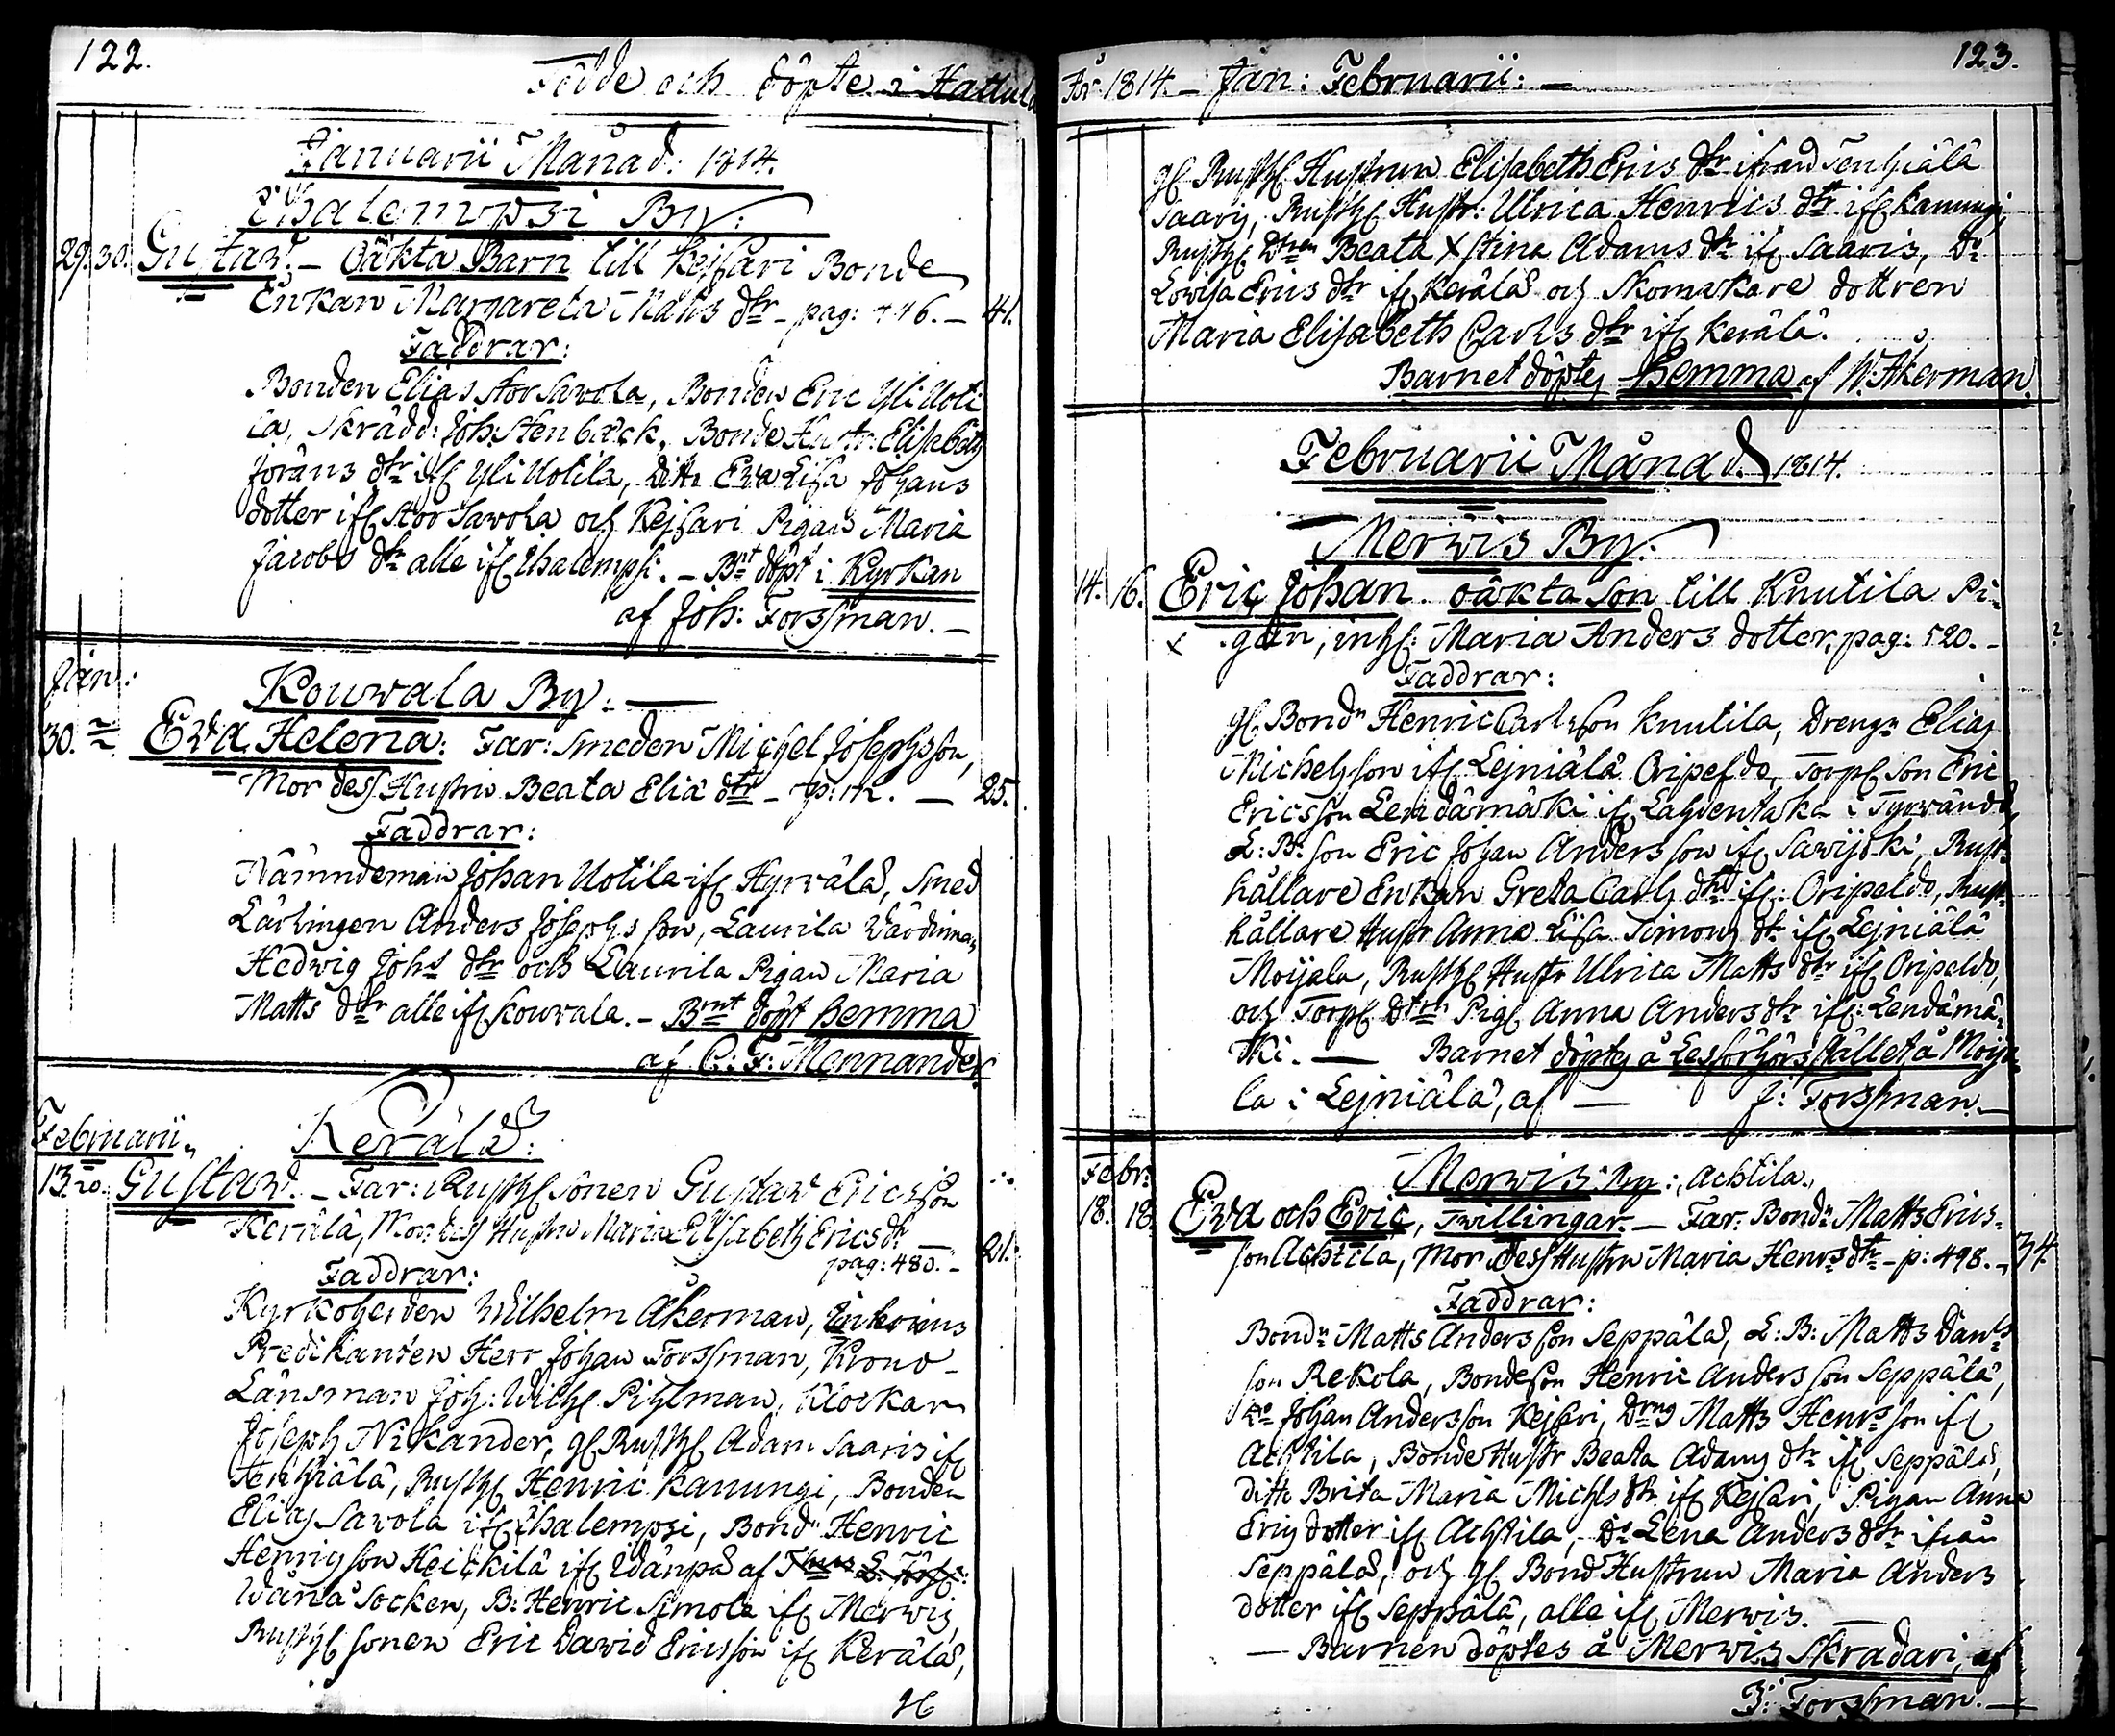 122.
Födde och döpte i Hattula
Januarii Månad: 1814.
Ihalempsi By:
29. 30. Gustav. – Oäkta Barn till Kejsari Bonde
Enkan Margareta Matts dtr – pag: 446. – 41.
Faddrar:
Bonden Elias Stor Savola, Bonden Eric Yli Uoti
la, Skrädd: Joh: Stenbäck, Bonde Hustr: Elisabeth
Jörans dtr ifr Yli Uotila, Ditto Eva Lisa Johans
dotter ifr Stor Savola och Kejsari Pigan Maria
Jacobs dtr alle ifr Ihalempsi. – Bnt döpt i Kyrkan
af Joh: Forssman. –
Jan:
Kouwala By. —
30. Eva Helena: Far: Smeden Michel Josephsson,
Mor dess Hustru Beata Elia dtr – — 25.
Faddrar:
Nämndeman Johan Uotila ifr Hyrwälä, Smed
Lärlingen Anders Josephsson, Laurila Värdinnan
Hedwig Johs dtr och Laurila Pigan Maria
Matts dtr alle ifr Kouwala. – Brnt döpt hemma
af C: F: Mennander
Februarii
Kerälä:
13. 20. Gustav. – Far: Rusth Sonen Gustav Ericsson
Kerälä, Mor: dess Hustru Maria Elisabeth Erics dtr —
pag: 480. – 21.
Faddrar:
Kyrkoherden Wilhelm Åkerman, Interims
Predikanten Herr Johan Forssman, Krono
Länsman Joh: Wilh Pihlman, Klockarn
Joseph Nikander, gl Rusth Adam Saaris ifr
Tenhiälä, Rusth Henric Kanungi, Bonden
Elias Savola ifr Ihalempsi, Bondn Henric
Henrigsson Heickilä ifr Idänpä af
Wånå Socken, B: Henric Simola ifr Merwis,
Rusth sonen Eric David Ericsson ifr Kerälä,
År 1814. – Jan: Februarii: –
123.
gl Rusth Hustrun Elisabeth Erics dtr ifrån Tenhiälä
Saaris, Rusth Hustr: Ulrica Henrics dtr ifr Kanungi,
Rusth Dtren Beata Xstina Adams dtr ifr Saaris, Do
Lovisa Erics dtr ifr Kerälä och Skomakare dottren
Maria Elisabeth Carls dtr ifr Kerälä.
Barnet döptes hemma af W. Åkerman.
Februarii Månad. 1814.
Merwis By:
14. 16. Eric Johan. oäkta Son till Knutila Pi-
x gan, inh: Maria Anders dotter, pag: 520. –
Faddrar:
gl. Bondn Henric Carlsson Knutila, Drengn Elias
Michelsson ifr Lejniälä Oripeldo, Torp Son Eric
Ericsson Lendämäki ifr Lahdentaka i Tyrwändö,
L: B: Son Eric Johan Andersson ifr Sawijoki, Rust
hållare Enkan Greta Carls dtr ifr: Oripeldo, Rust-
hållare Hustr Anna Lisa Simons dtr ifr Lejniälä
Moijala, Rusth Hustr Ulrica Matts dtr ifr Oripeldo,
och Torp Dtrn Pig Anna Anders dtr ifr: Lendämä-
ki. — Barnet döptes å Läsförhörs stället å Moija
la i Lejniälä, af — J: Forssman. –
Febr:
Merwis by: Achtila.
18. 18. Eva och Eric, Twillingar. – Far: Bondn Matts Erics-
son Achtila, Mor dess Hustru Maria Henrs dtr – p: 498. – 34.
Faddrar:
Bondn Matts Andersson Seppälä, L: B: Matts Danls
son Rekola, Bondeson Henric Andersson Seppälä,
Do Johan Andersson Kejsari, Drng Matts Henrsson ifr
Achtila, Bonde Hustr Beata Adams dtr ifr Seppälä,
ditto Brita Maria Michls dtr ifr Kejsari, Pigan Anna
Erics dotter ifr Achtila, Do Lena Anders dtr ifrån
Seppälä, och gl Bond Hustrun Maria Anders
dotter ifr Seppälä, alle ifr Merwis.
— Barnen döptes å Merwis Skradari, af
J: Forssman. —